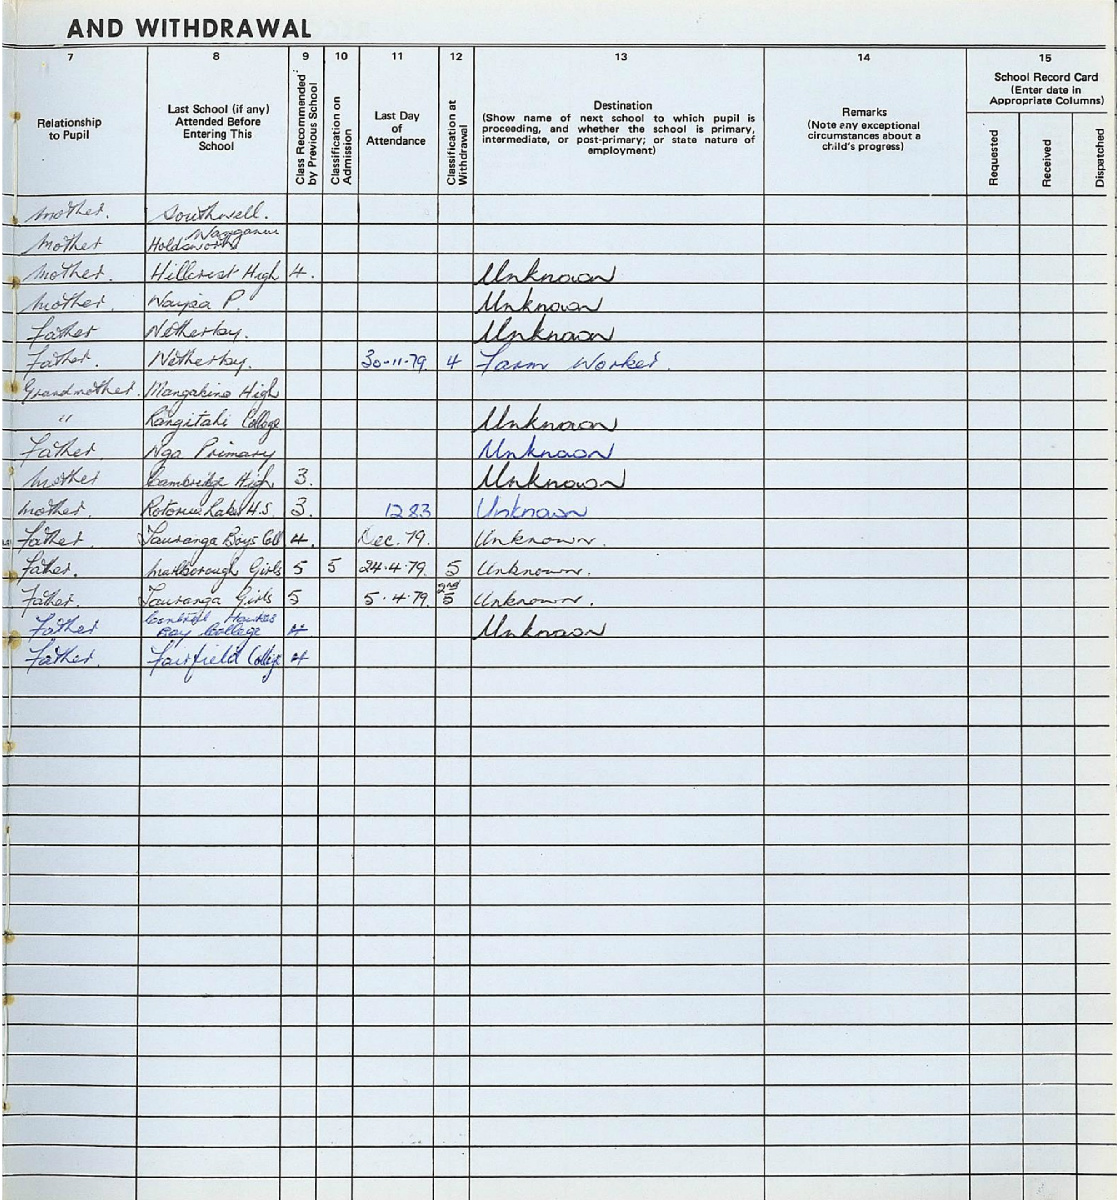 AND WITHDRAWAL
7 8 9 10 11 12 13 14 15
Relationship to Pupil
Last School (if any) Attended Before Entering This School
Class Recommended by Previous School
Classification on Admission
Last Day of Attendance
Classification at Withdrawal
Destination
(Show name of next school to which pupil is proceeding, and whether the school is primary, intermediate, or post-primary; or state nature of employment)
Remarks
(Note any exceptional circumstances about a child's progress)
School Record Card
(Enter date in Appropriate Columns)
Requested
Received
Dispatched
Mother. Southwell.
Wanganui
Mother Holdsworth
Mother. Hillcrest High 4. Unknown
Mother. P. Unknown
Father Netherby. Unknown
Father. Netherby. 30-11-79. 4 Farm Worker.
Grandmother. Mangakino High
" Rangitahi College Unknown
Father. Nga Primary Unknown
Mother Cambridge High 3. Unknown
Mother. Rotorua Lakes H.S. 3. 12 83 Unknown
Father. Tauranga Boys Coll 4. Dec. 79. Unknown.
Father. Marlborough Girls 5 5 24.4.79. 5 Unknown.
Father. Tauranga Girls 5 5.4.79. 2nd 5 Unknown.
Father Central Hawkes Bay College 4. Unknown
Father. Fairfield College 4